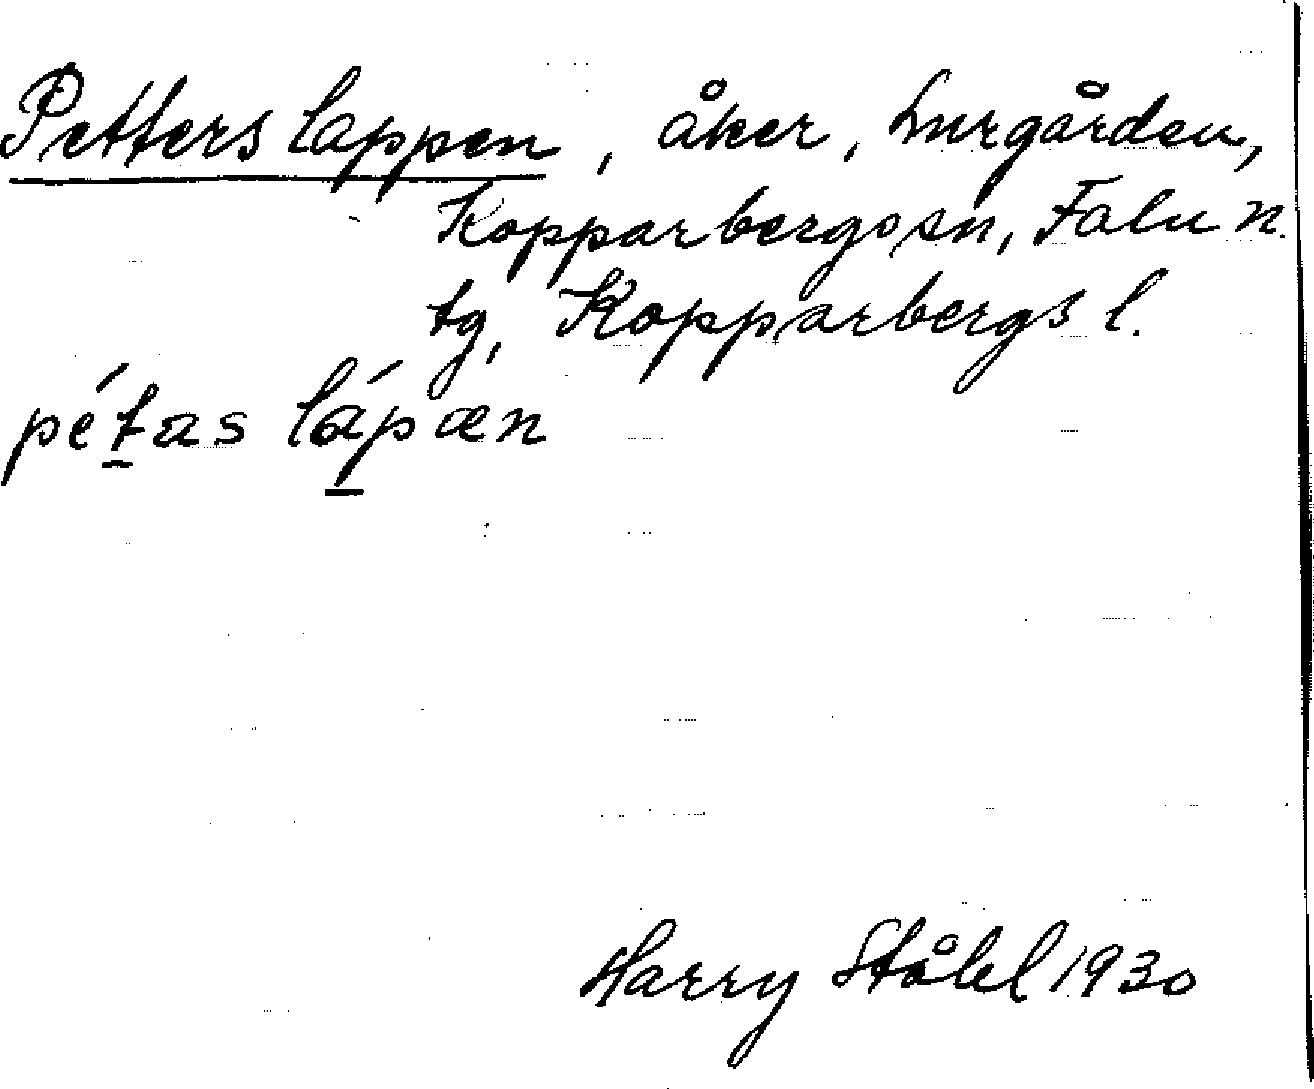 Petters lappen, åker, Lurgården,
Kopparbergs sn, Falu n.
tg, Kopparbergs l.
pétas lápæn
Harry Ståhl 1930